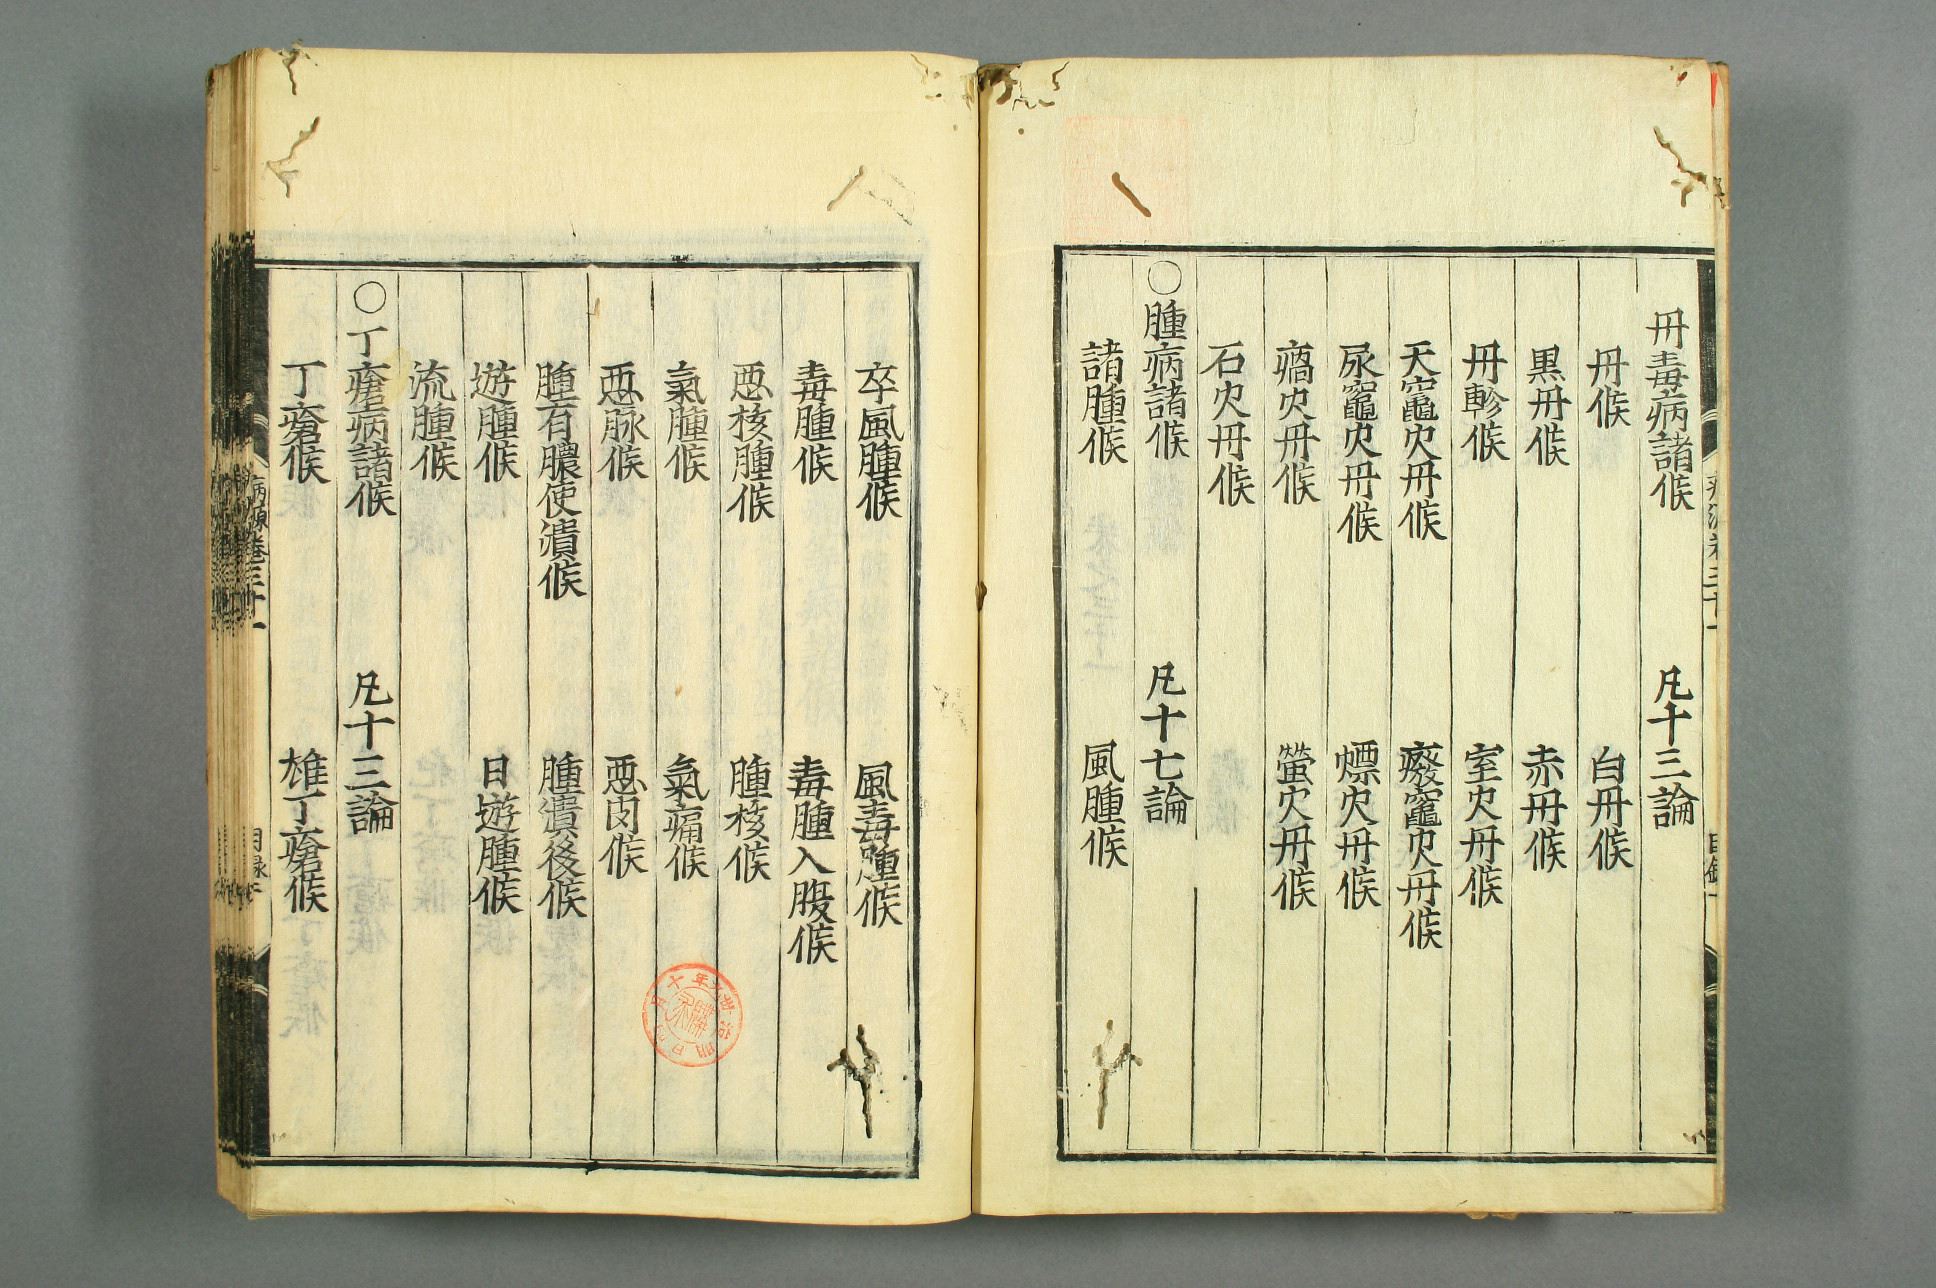 丹毒病諸候　凡十三論
丹候　白丹候
黒丹候　赤丹候
丹軫候　室火丹候
天竈火丹候　癈竈火丹候
尿竈火丹候　熛火丹候
瘑火丹候　螢火丹候
石火丹候
○腫病諸候　凡十七論
諸腫候　風腫候
卒風腫候　風毒腫候
毒腫候　毒腫入腹候
悪核腫候　腫核候
氣腫候　氣痛候
悪脉候　悪肉候
腫有膿使潰候　腫潰後候
遊腫候　日遊腫候
流腫候
○丁瘡病諸候　凡十三論
丁瘡候　雄丁瘡候
病源卷三十一　目録